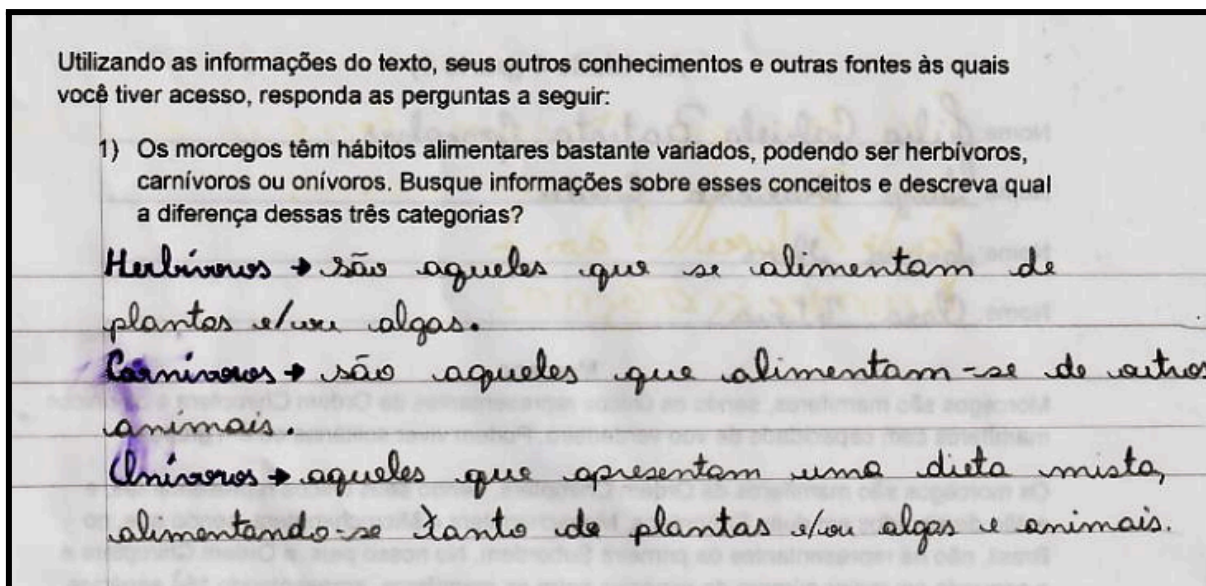 Utilizando as informações do texto, seus outros conhecimentos e outras fontes às quais
você tiver acesso, responda as perguntas a seguir:
1) Os morcegos têm hábitos alimentares bastante variados, podendo ser herbívoros,
carnívoros ou onívoros. Busque informações sobre esses conceitos e descreva qual
a diferença dessas três categorias?
Herbívoros → são aqueles que se alimentam de
plantas e/ou algas.
Carnívoros → são aqueles que alimentam-se de outros
animais.
Onívoros → aqueles que apresentam uma dieta mista,
alimentando-se tanto de plantas e/ou algas e animais.